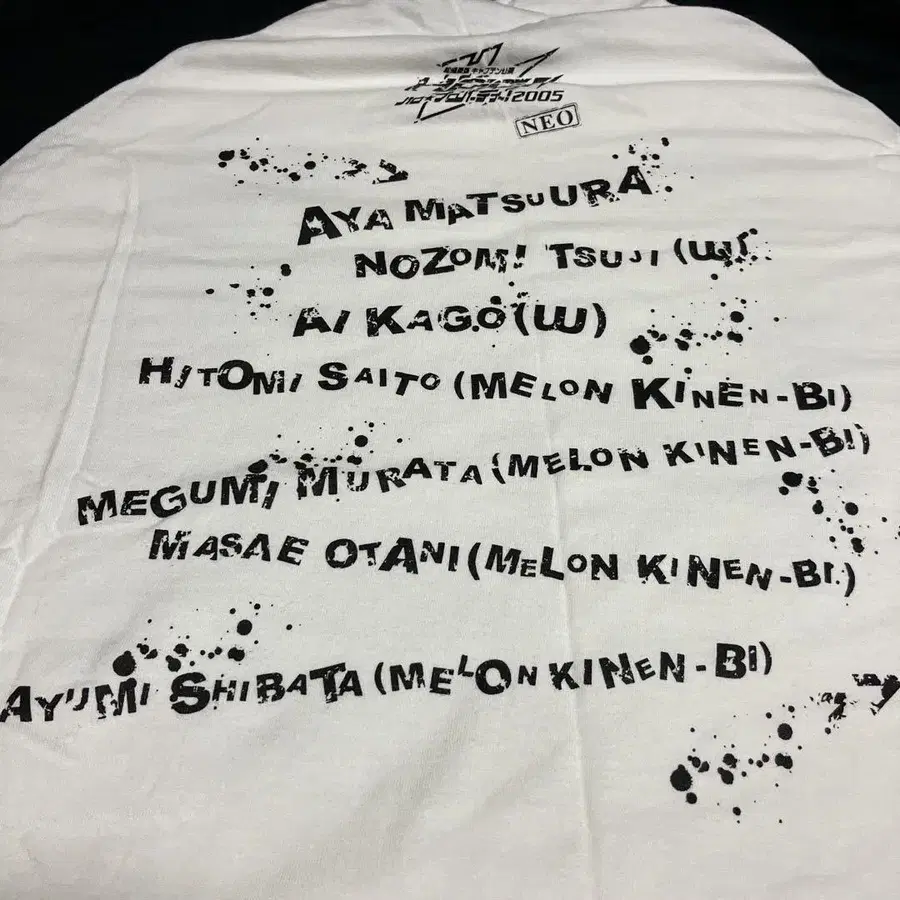 松浦亜弥 キャプテン公演
ハロ☆プロパーティ〜!2005
NEO
AYA MATSUURA
NOZOMI TSUJI (W)
AI KAGO (W)
HITOMI SAITO (MELON KINEN-BI)
MEGUMI MURATA (MELON KINEN-BI)
MASAE OTANI (MELON KINEN-BI)
AYUMI SHIBATA (MELON KINEN-BI)